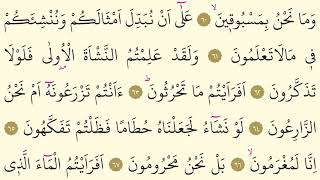 وَمَا نَحْنُ بِمَسْبُوقٖينَۙ ﴿٦٠﴾ عَلٰٓى اَنْ نُبَدِّلَ اَمْثَالَكُمْ وَنُنْشِئَكُمْ
فٖى مَا لَاتَعْلَمُونَ ﴿٦١﴾ وَلَقَدْ عَلِمْتُمُ النَّشْاَةَ الْاُولٰى فَلَوْلَا
تَذَكَّرُونَ ﴿٦٢﴾ اَفَرَاَيْتُمْ مَا تَحْرُثُونَۜ ﴿٦٣﴾ ءَاَنْتُمْ تَزْرَعُونَهُٓ اَمْ نَحْنُ
الزَّارِعُونَ ﴿٦٤﴾ لَوْ نَشَٓاءُ لَجَعَلْنَاهُ حُطَامًا فَظَلْتُمْ تَفَكَّهُونَ ﴿٦٥﴾
اِنَّا لَمُغْرَمُونَۙ ﴿٦٦﴾ بَلْ نَحْنُ مَحْرُومُونَ ﴿٦٧﴾ اَفَرَاَيْتُمُ الْمَٓاءَ الَّذٖى